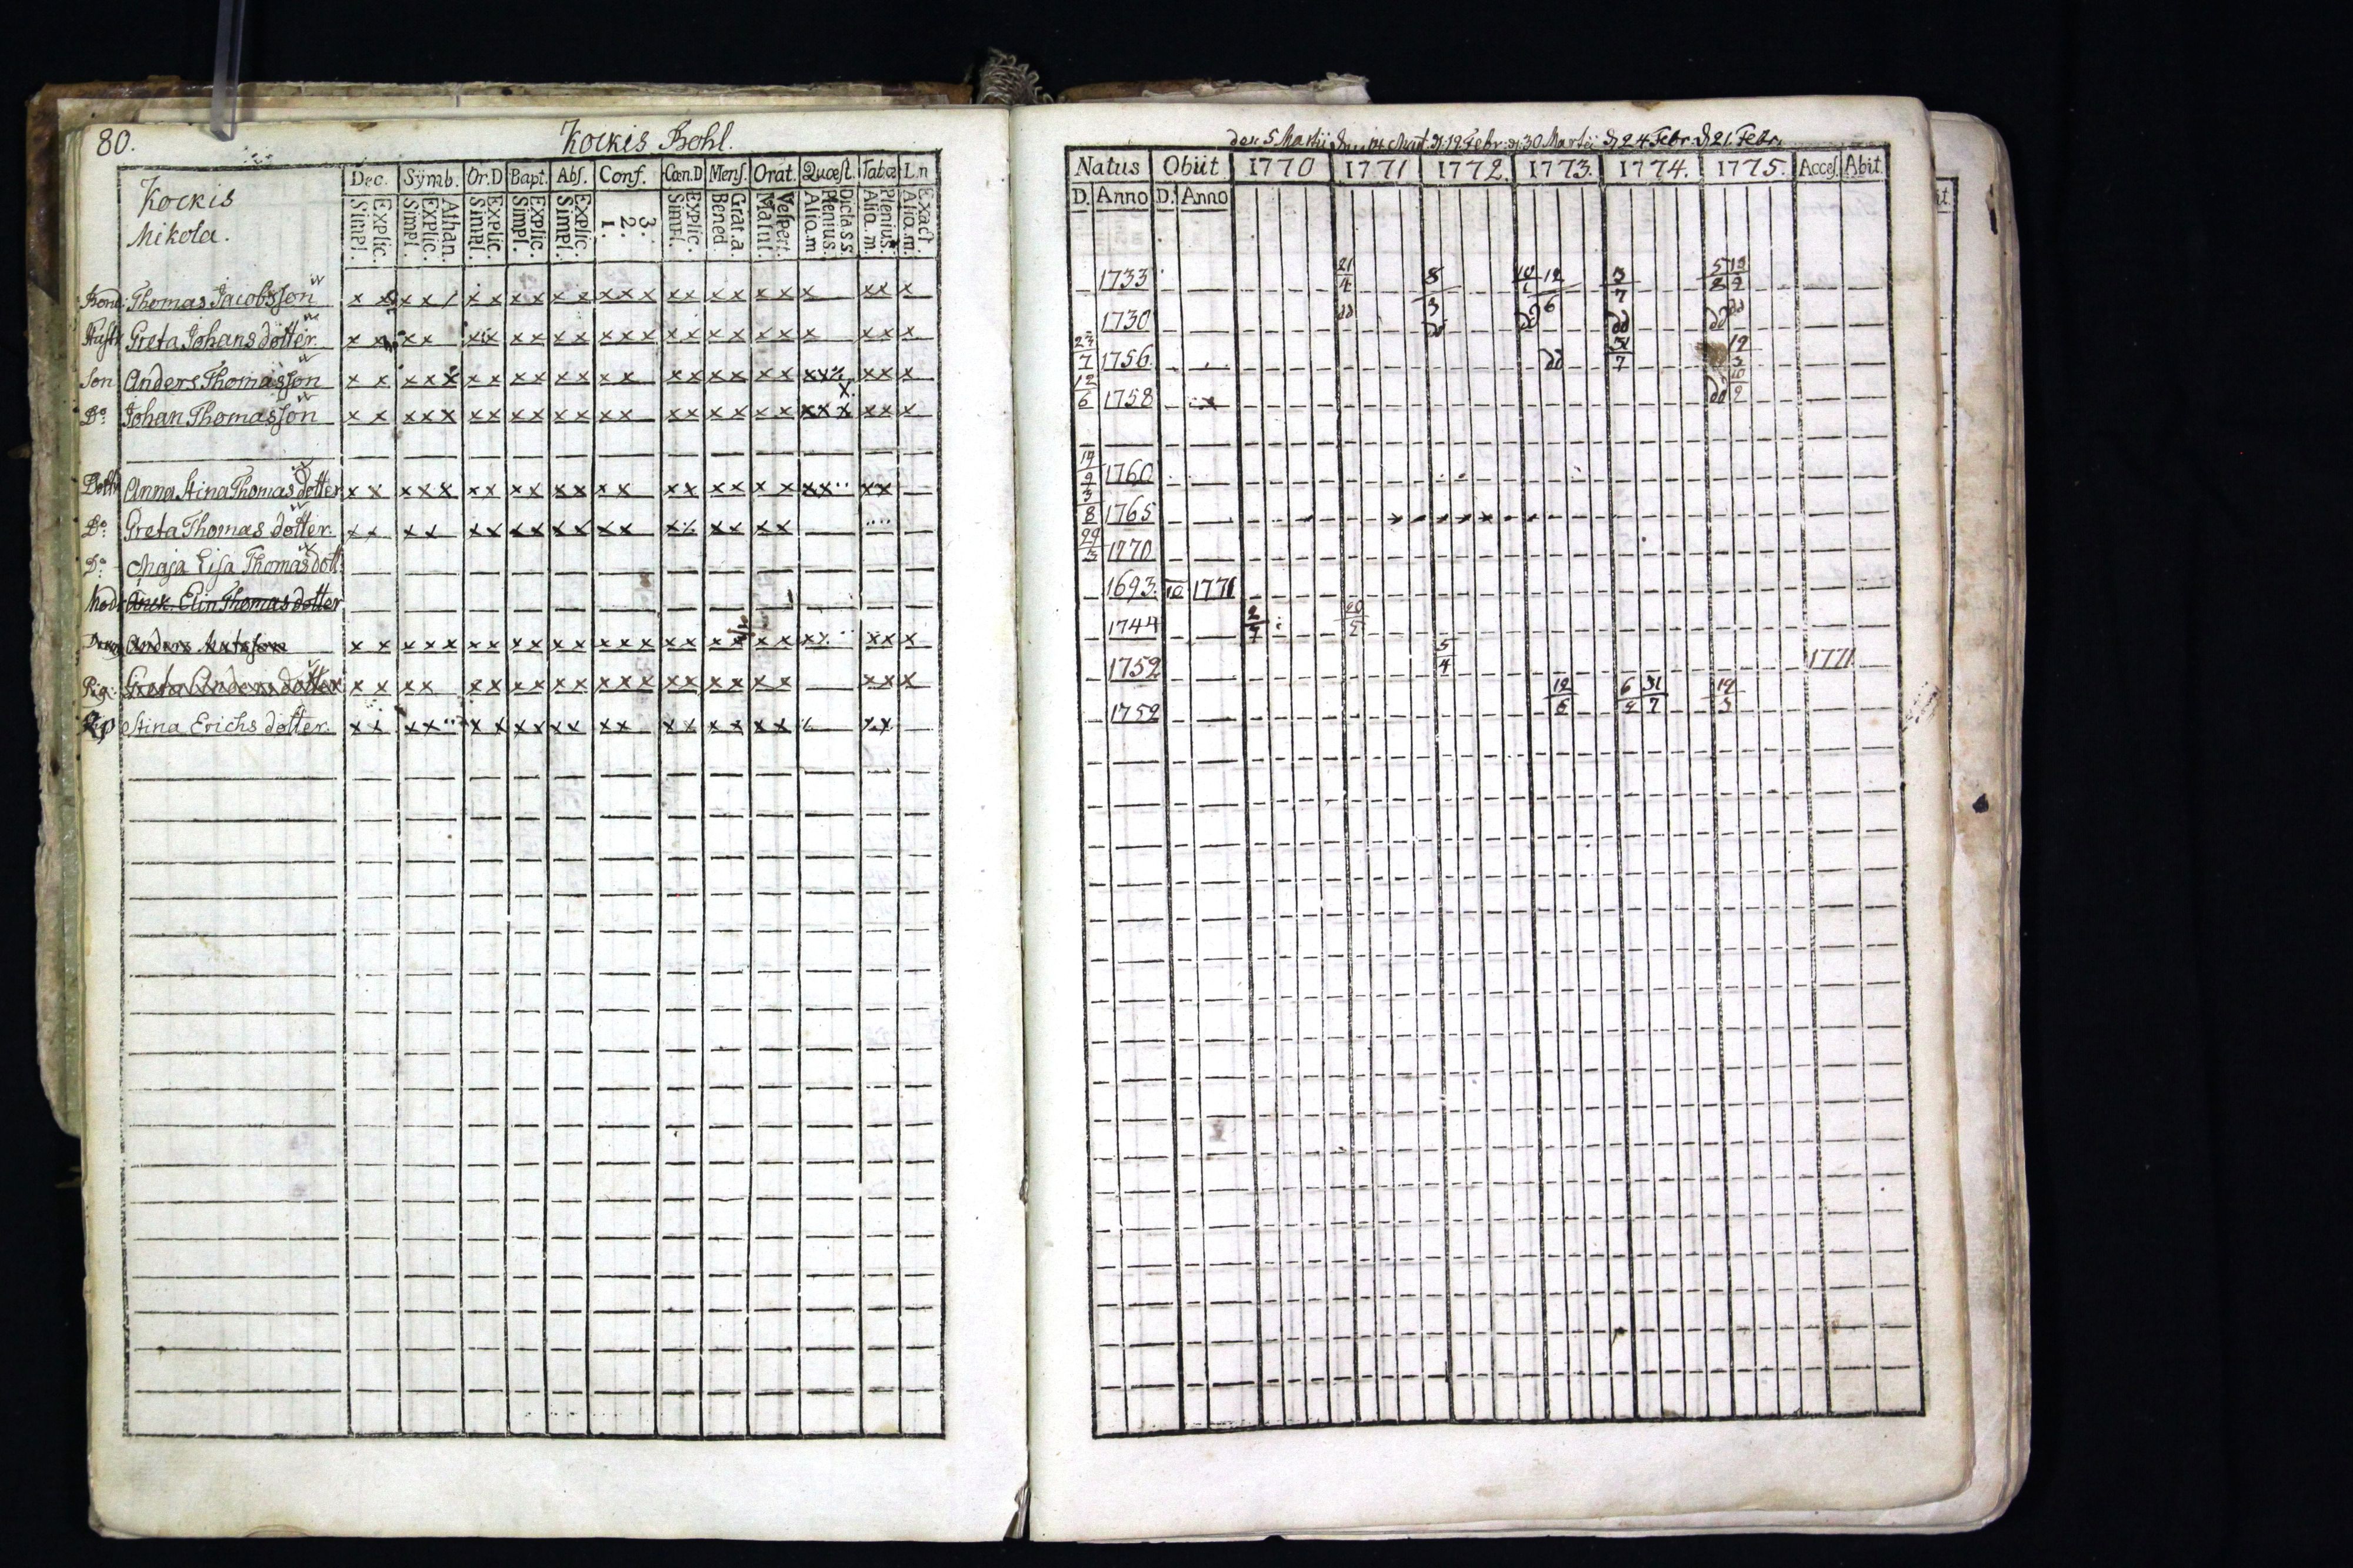 80.
Kockis Bohl.
Kockis
Nikola.
Dec. Symb. Or.D Bapt. Abs. Conf. Cœn.D Mens. Orat. Quæst. Tab.œ L.n
Explic. Simpl. Athan. Explic. Simpl. Explic. Simpl. Explic. Simpl. Explic. Simpl. 3. 2. 1. Explic. Simpl. Grat.a. Bened. Vespert. Matut. Dictass. Plenius. Aliq.m Plenius. Aliq.m. Exact. Aliq.m.
Bond: Thomas Jacobsson x x x x / x x x x x x x x x x x x x x x x x x x x
Hustr Greta Johansdotter x x x x x x x x x x x x x x x x x x x x x x x
Son Anders Thomasson x x x x x x x x x x x x x x x x x x x x x x x x
Do Johan Thomasson x x x x x x x x x x x x x x x x x x x x x x x x x
Dottr Anna Stina Thomasdotter x x x x x x x x x x x x x x x x x x x x x x x
Do Greta Thomasdotter. x x x x x x x x x x x x x x x x x
Do Maja Lisa Thomasdott:
Mod: Änck. Elin Thomasdotter
Dreng Anders Matsson x x x x x x x x x x x x x x x x x x x x x x x x
Pig: Greta Andersdotter x x x x x x x x x x x x x x x x x x x x x x
Stina Erichsdotter. x x x x x x x x x x x x x x x x x x x x x
den 5 Martii Mart. d. 19 Febr. d. 30 Martii d. 24 Febr. d. 21 Febr.
Natus Obiit 1770 1771 1772. 1773. 1774. 1775. Acces. Abit.
D. Anno D. Anno
1733 21/4 8/3 12/6 3/7 5/8
1730 dd do do dd dd dd
23/7 1756. do 31/7 19/3
12/6 1758 do
19/9 1760
3/8 1765
29/3 1770
1693. 1771
1744 2/9
1752 5/4 1771
1752 12/6 6/2 31/7 19/3